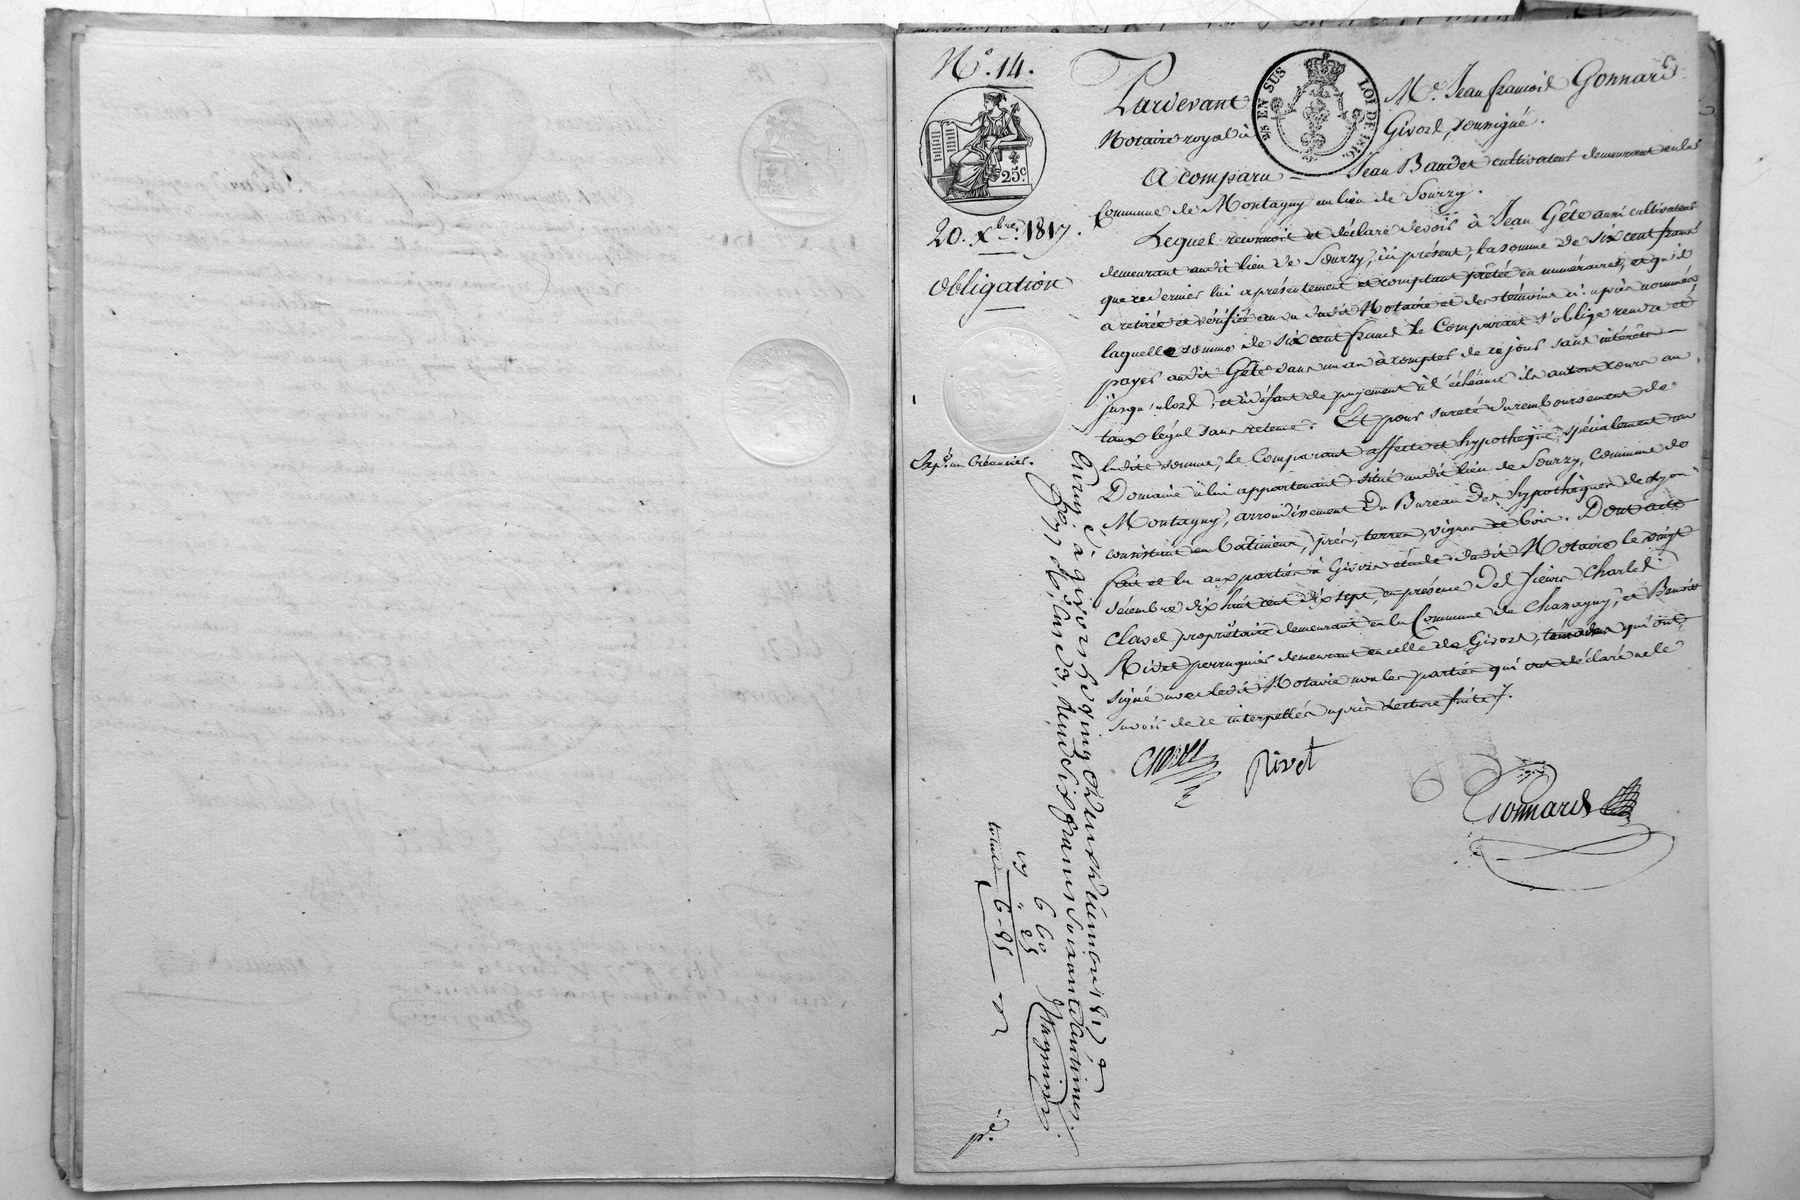 N.º 14.
25.c
20. Xbre. 1817.
Obligation
Expº. au Créancier.
EN SUS LOI DE 1816.
Pardevant Me. Jean françois Gonnard
Notaire royal à Givors, soussigné.
A comparu Jean Baudet cultivateur demeurant en la
Commune de Montagny au lieu de Sourzy.
Lequel reconnoit et déclare devoir à Jean Gête aussi cultivateur
demeurant audit lieu de Sourzy, ici présent, la somme de six cent francs
que ce dernier lui a présentement et comptant prêtée en numéraire, et qu'il
a retirée et vérifiée au vu dudit Notaire et des témoins ci-après nommés
laquelle somme de six cent francs le Comparant s'oblige rendre et
payer audit Gête dans un an à compter de ce jour sans intérêts
jusqu'alors, et à défaut de payement à l'échéance ils auront cours au
taux légal sans retenue. Et pour sureté du remboursement de
ladite somme, le Comparant affecte et hypothèque spécialement un
Domaine à lui appartenant situé audit lieu de Sourzy, commune de
Montagny, arrondissement du Bureau des hypothèques de Lyon
consistant en bâtimens, prés, terres, vignes et bois. Dont acte
fait et lu aux parties à Givors étude dudit Notaire le vingt
décembre dix huit cent dix sept, en présence des sieurs Charles
Clavel propriétaire demeurant en la Commune de Chassagny, et Benoît
Rivet perruquier demeurant en celle de Givors, témoins qui ont
signé avec ledit Notaire non les parties qui ont déclaré ne le
savoir de ce interpellés après lecture faite.
Clavel Rivet
Gonnard
Enreg.é à Givors le vingt deux décembre 1817
reçu six francs soixante centimes.
6 60
total 6-85